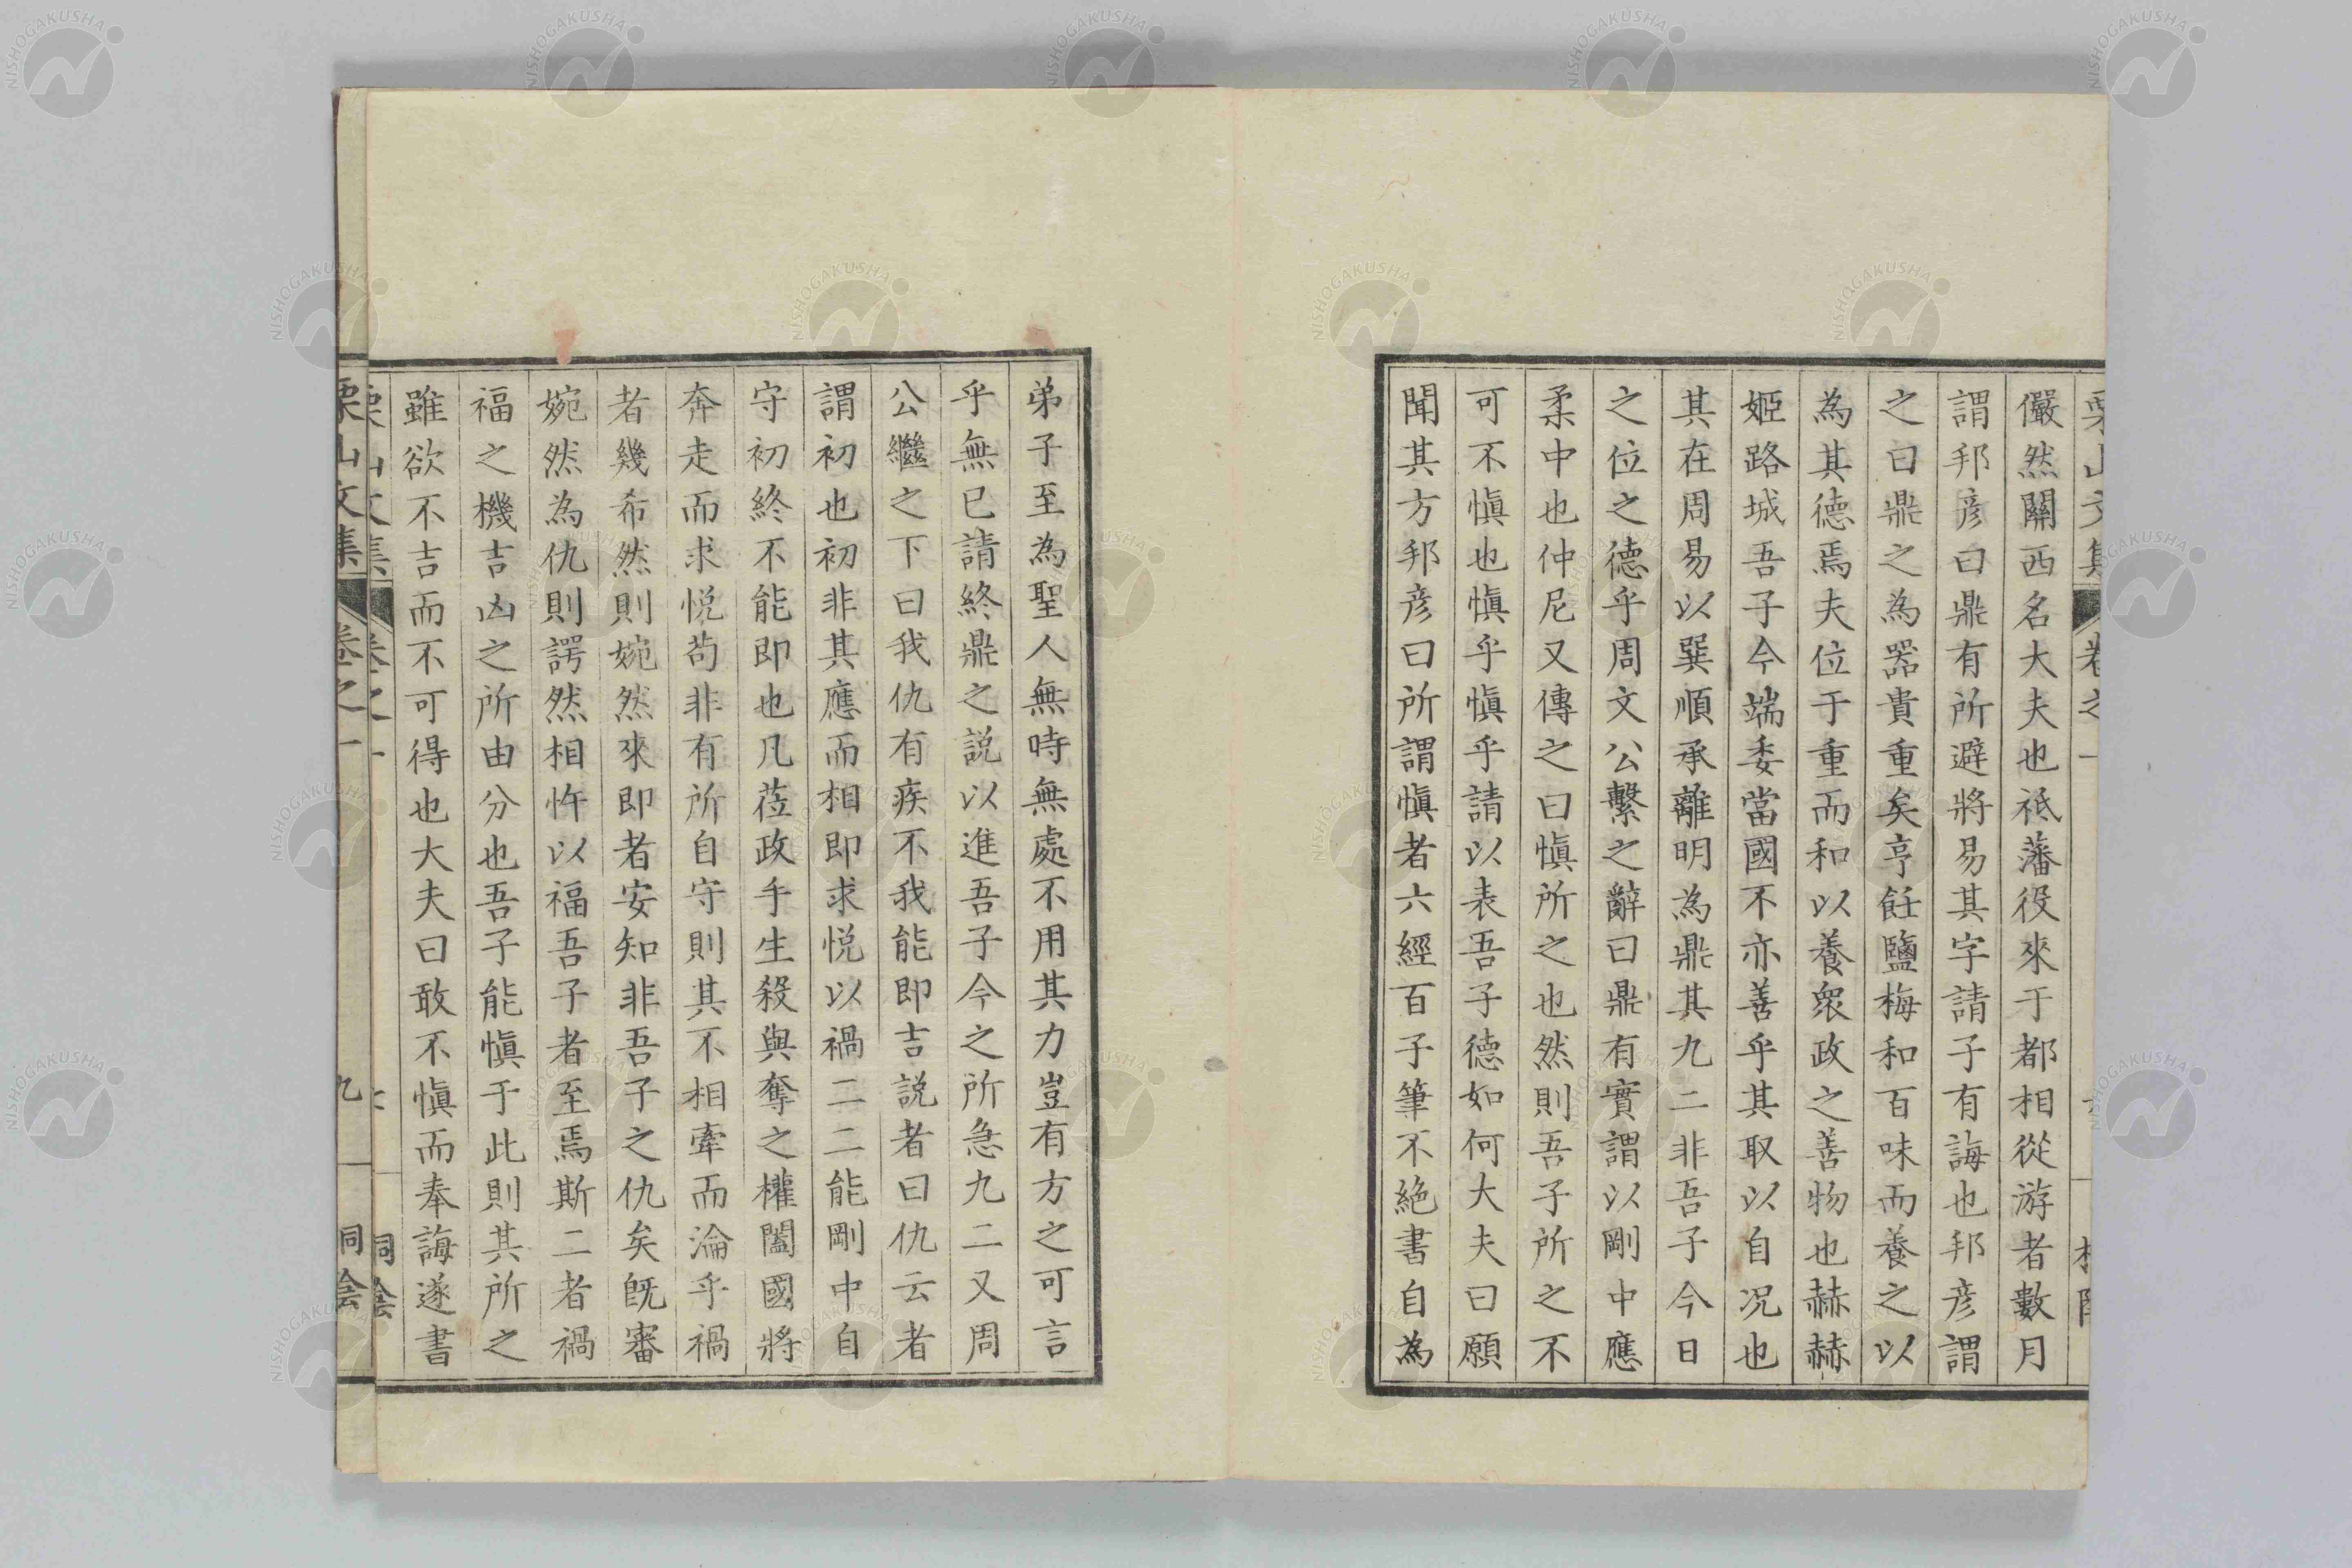 儼然關西名大夫也祗藩役來于都相從游者數月
謂邦彦曰鼎有所避將易其字請子有誨也邦彦謂
之曰鼎之為器貴重矣亨飪鹽梅和百味而養之以
為其德焉夫位于重而和以養衆政之善物也赫赫
姬路城吾子今端委當國不亦善乎其取以自况也
其在周易以巽順承離明為鼎其九二非吾子今日
之位之德乎周文公繫之辭曰鼎有實謂以剛中應
柔中也仲尼又傳之曰愼所之也然則吾子所之不
可不愼也愼乎愼乎請以表吾子德如何大夫曰願
聞其方邦彦曰所謂愼者六經百子筆不絶書自為
弟子至為聖人無時無處不用其力豈有方之可言
乎無已請終鼎之説以進吾子今之所急九二又周
公繼之下曰我仇有疾不我能即吉説者曰仇云者
謂初也初非其應而相即求悦以禍二二能剛中自
守初終不能即也凡莅政手生殺與奪之權闔國將
奔走而求悦苟非有所自守則其不相牽而淪乎禍
者幾希然則婉然來即者安知非吾子之仇矣既審
婉然為仇則諤然相忤以福吾子者至焉斯二者禍
福之機吉凶之所由分也吾子能愼于此則其所之
雖欲不吉而不可得也大夫曰敢不愼而奉誨遂書
栗山文集
卷之一
九